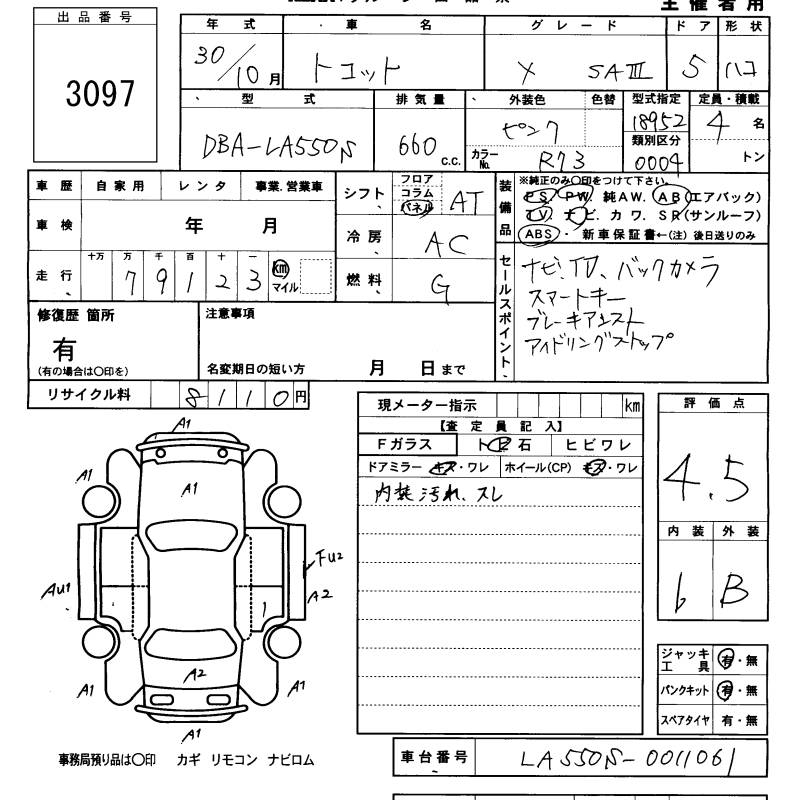 主催者用
出品番号
3097
年式 車名 グレード ドア 形状
30/10月 トコット X SAⅢ 5 ハコ
型式 排気量 外装色 色替 型式指定 定員・積載
DBA-LA550S 660 c.c. ピンク 18952 4名
カラーNo. R73 類別区分 0004 トン
車歴 自家用 レンタ 事業.営業車
車検 年 月
走行 十万 万 千 百 十 一
79123 km マイル
シフト フロア コラム パネル AT
冷房 AC
燃料 G
装備品 ※純正のみ〇印をつけて下さい。
PS. PW. 純AW. AB(エアバック)
TV. ナビ. カワ. SR(サンルーフ)
ABS・ 新車保証書←(注) 後日送りのみ
セールスポイント
ナビ、TV、バックカメラ
スマートキー
ブレーキアシスト
アイドリングストップ
修復歴 箇所
有
(有の場合は〇印を)
注意事項
名変期日の短い方 月 日まで
リサイクル料 8110円
現メーター指示 km
【査定員記入】
Fガラス ト石 ヒビワレ
ドアミラー キズ・ワレ ホイール(CP) キズ・ワレ
内装汚れ、スレ
評価点
4.5
内装 外装
6 B
ジャッキ工具 有・無
パンクキット 有・無
スペアタイヤ 有・無
A1
A1
A1
Fu2
Au1
A2
A2
A1
A1
A1
事務局預り品は〇印 カギ リモコン ナビロム
車台番号 LA550S-0011061